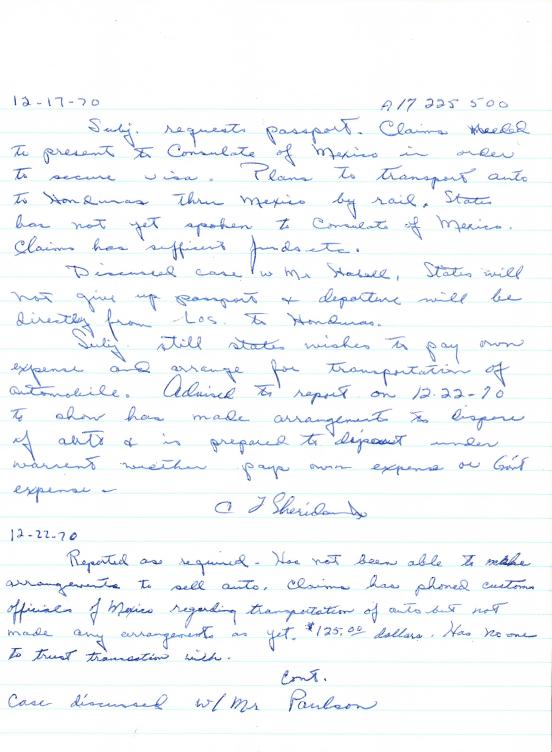 12-17-70 A17 225 500
Subj. requests passport. Claims needed
to present to Consulate of Mexico in order
to secure visa. Plans to transport auto
to Honduras thru Mexico by rail. States
has not yet spoken to Consulate of Mexico.
Claims has sufficient funds etc.
Discussed case w Mr States will
not give up passport & departure will be
directly from Los. to Honduras.
Subj. still states wishes to pay own
expense and arrange for transportation of
automobile. Advised to report on 12-22-70
to show has made arrangements to dispose
of auto & is prepared to depart under
warrent whether pays own expense or Gov't
expense -
C J Sheridan
12-22-70
Reported as required - Has not been able to make
arrangements to sell auto. Claims has phoned customs
officials of Mexico regarding transportation of auto but not
made any arrangements as yet. $125.00 dollars. Has no one
to trust transaction with.
Cont.
Case discussed w/ Mr Paulson